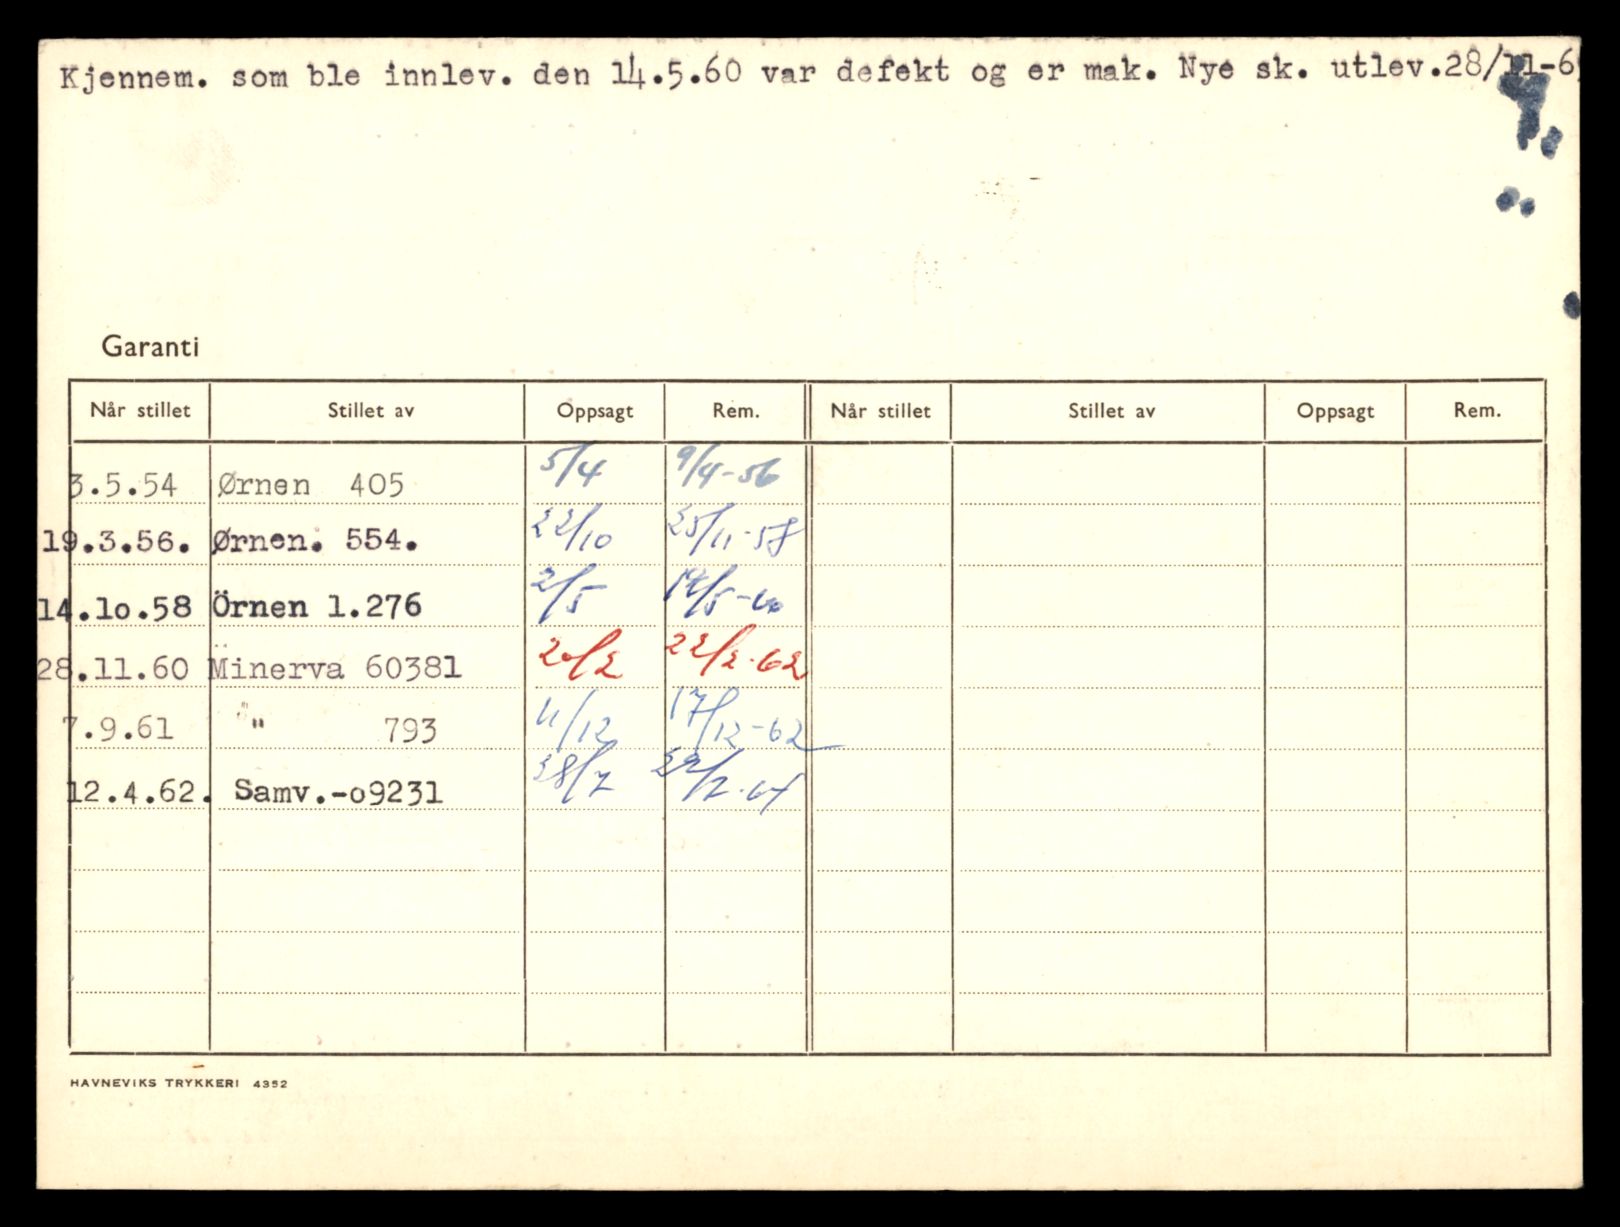 Kjennem. som ble innlev. den 14.5.60 var defekt og er mak. Nye sk. utlev.28/11-6
Garanti
Når stillet Stillet av Oppsagt Rem. Når stillet Stillet av Oppsagt Rem.
3.5.54 Ørnen 405 5/4 9/4-56
19.3.56. Ørnen. 554. 22/10 25/11-58
14.1o.58 Örnen 1.276 2/5 14/5-60
28.11.60 Minerva 60381 20/2 22/2-62
7.9.61 " 793 11/12 17/12-62
12.4.62. Samv.-o9231 28/7
HAVNEVIKS TRYKKERI 4352